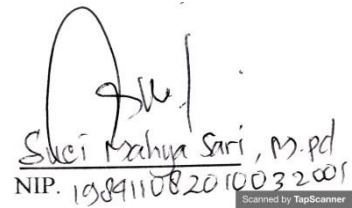 Suci Mahya Sari, M.pd
NIP. 198411082010032001
Scanned by TapScanner